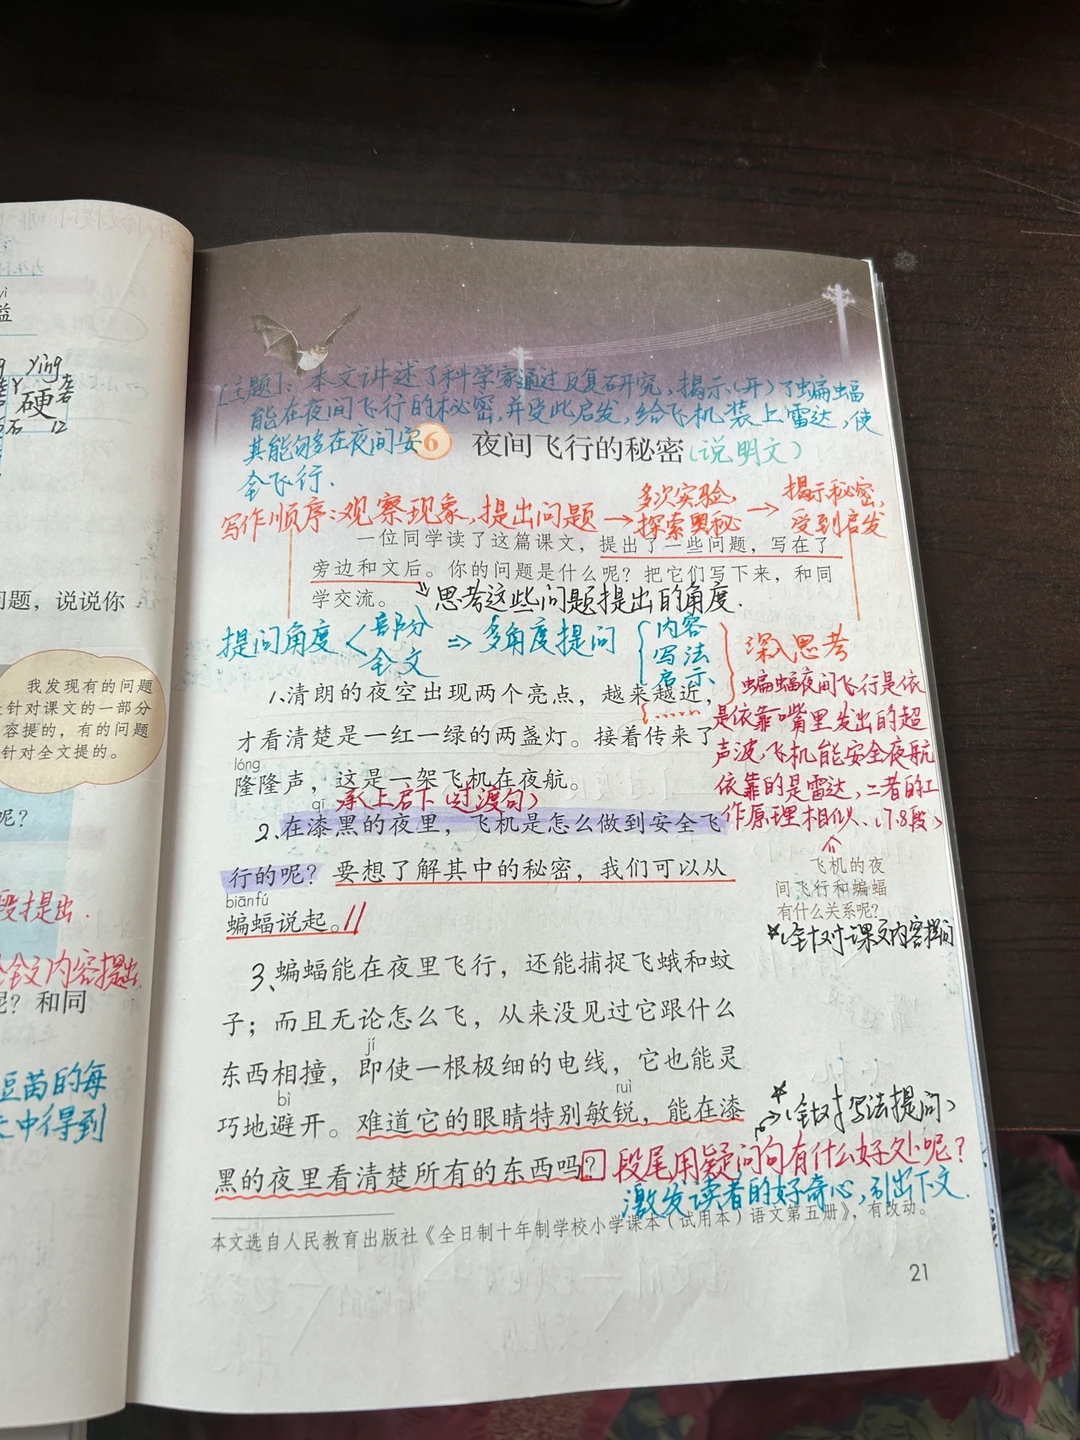 益
yìng
硬
石 12
问题，说说你
我发现有的问题
针对课文的一部分
容提的，有的问题
针对全文提的。
呢？
段提出.
全文内容提出.
呢？和同
豆苗的每
中得到
[主题]：本文讲述了科学家通过反复研究，揭示(开)了蝙蝠
能在夜间飞行的秘密，并受此启发，给飞机装上雷达，使
其能够在夜间安
全飞行.
6 夜间飞行的秘密(说明文)
写作顺序：观察现象，提出问题→多次实验，探索奥秘→揭示秘密，受到启发
一位同学读了这篇课文，提出了一些问题，写在了
旁边和文后。你的问题是什么呢？把它们写下来，和同
学交流。
思考这些问题提出的角度.
提问角度<部分 全文 ⇒多角度提问{内容 写法 启示 ......}深入思考
1、清朗的夜空出现两个亮点，越来越近，
才看清楚是一红一绿的两盏灯。接着传来了
lóng
隆隆声，这是一架飞机在夜航。
承上启下(过渡句)
qī
2、在漆黑的夜里，飞机是怎么做到安全飞
行的呢？要想了解其中的秘密，我们可以从
biānfú
蝙蝠说起。//
蝙蝠夜间飞行是依
是依靠嘴里发出的超
声波，飞机能安全夜航
依靠的是雷达，二者的工
作原理相似.(7.8段)
飞机的夜
间飞行和蝙蝠
有什么关系呢？
*(针对课文内容提问
3、蝙蝠能在夜里飞行，还能捕捉飞蛾和蚊
子；而且无论怎么飞，从来没见过它跟什么
jí
东西相撞，即使一根极细的电线，它也能灵
bì
ruì
巧地避开。难道它的眼睛特别敏锐，能在漆
*(针对写法提问)
黑的夜里看清楚所有的东西吗？段尾用疑问句有什么好处呢？
激发读者的好奇心，引出下文.
本文选自人民教育出版社《全日制十年制学校小学课本（试用本）语文第五册》，有改动。
21